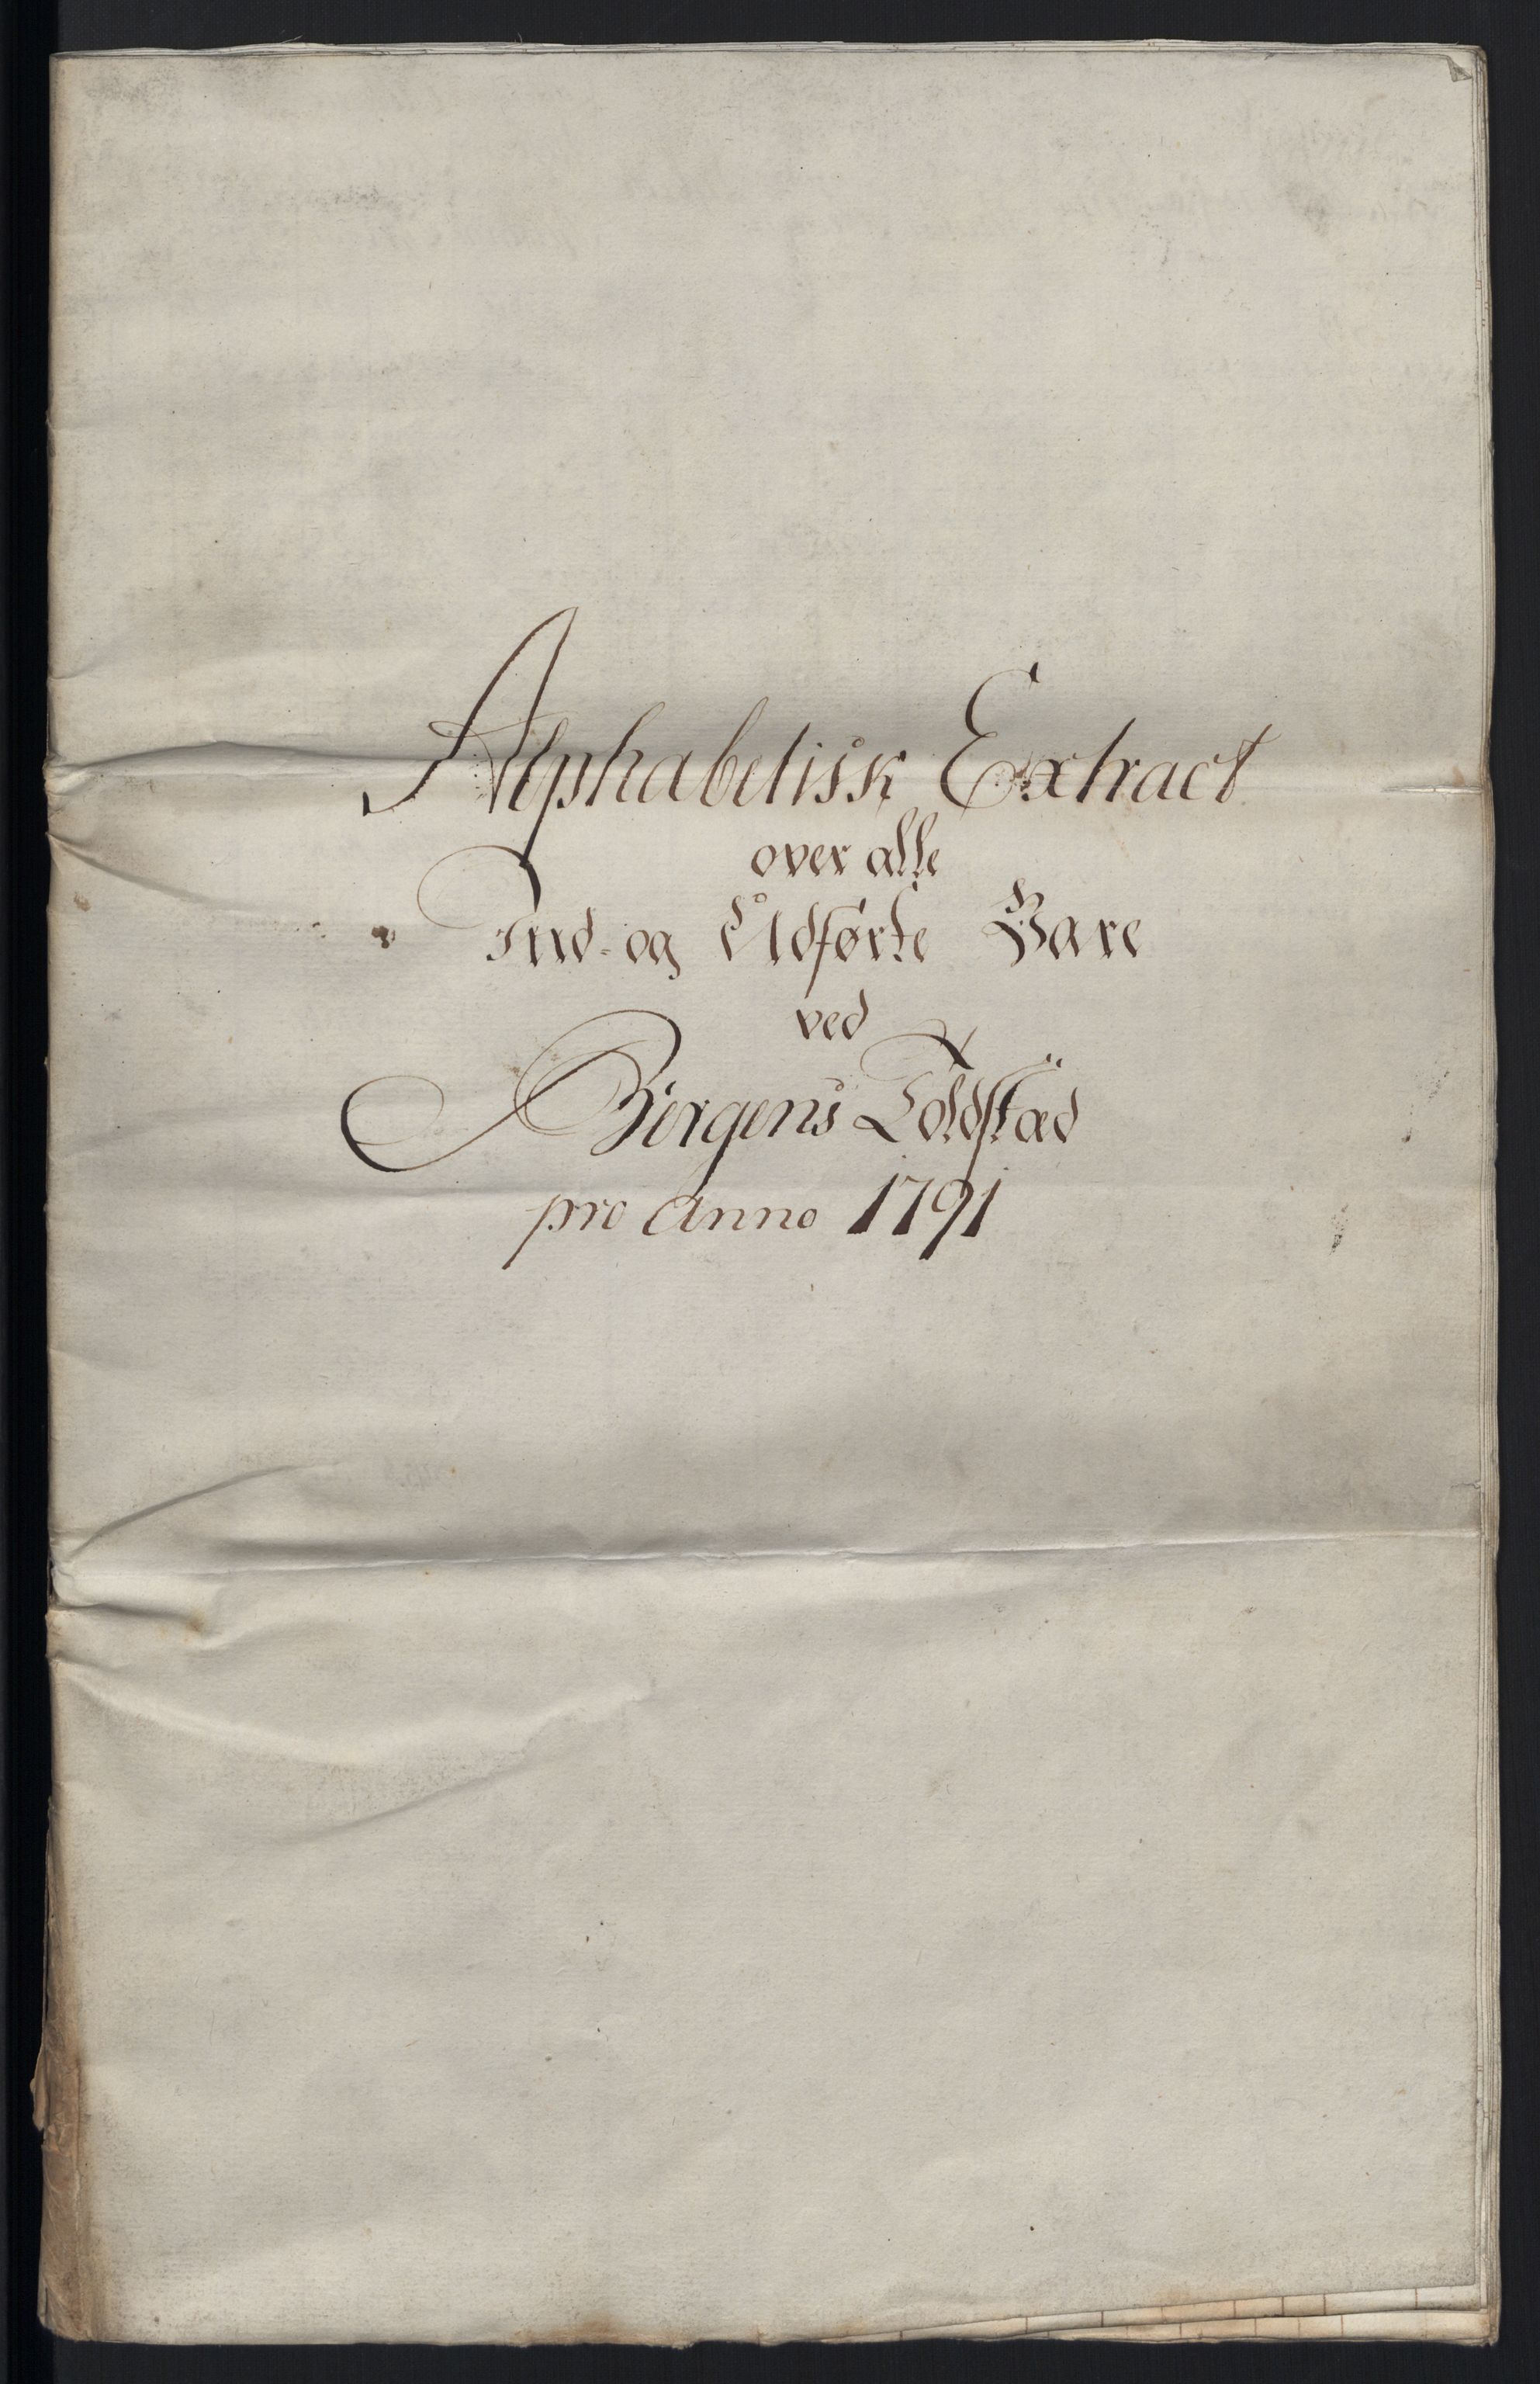 Alphabetisk Extract
over alle
Ind- og Udførte Vare
ved
Bergens Toldstæd
pro Anno 1791